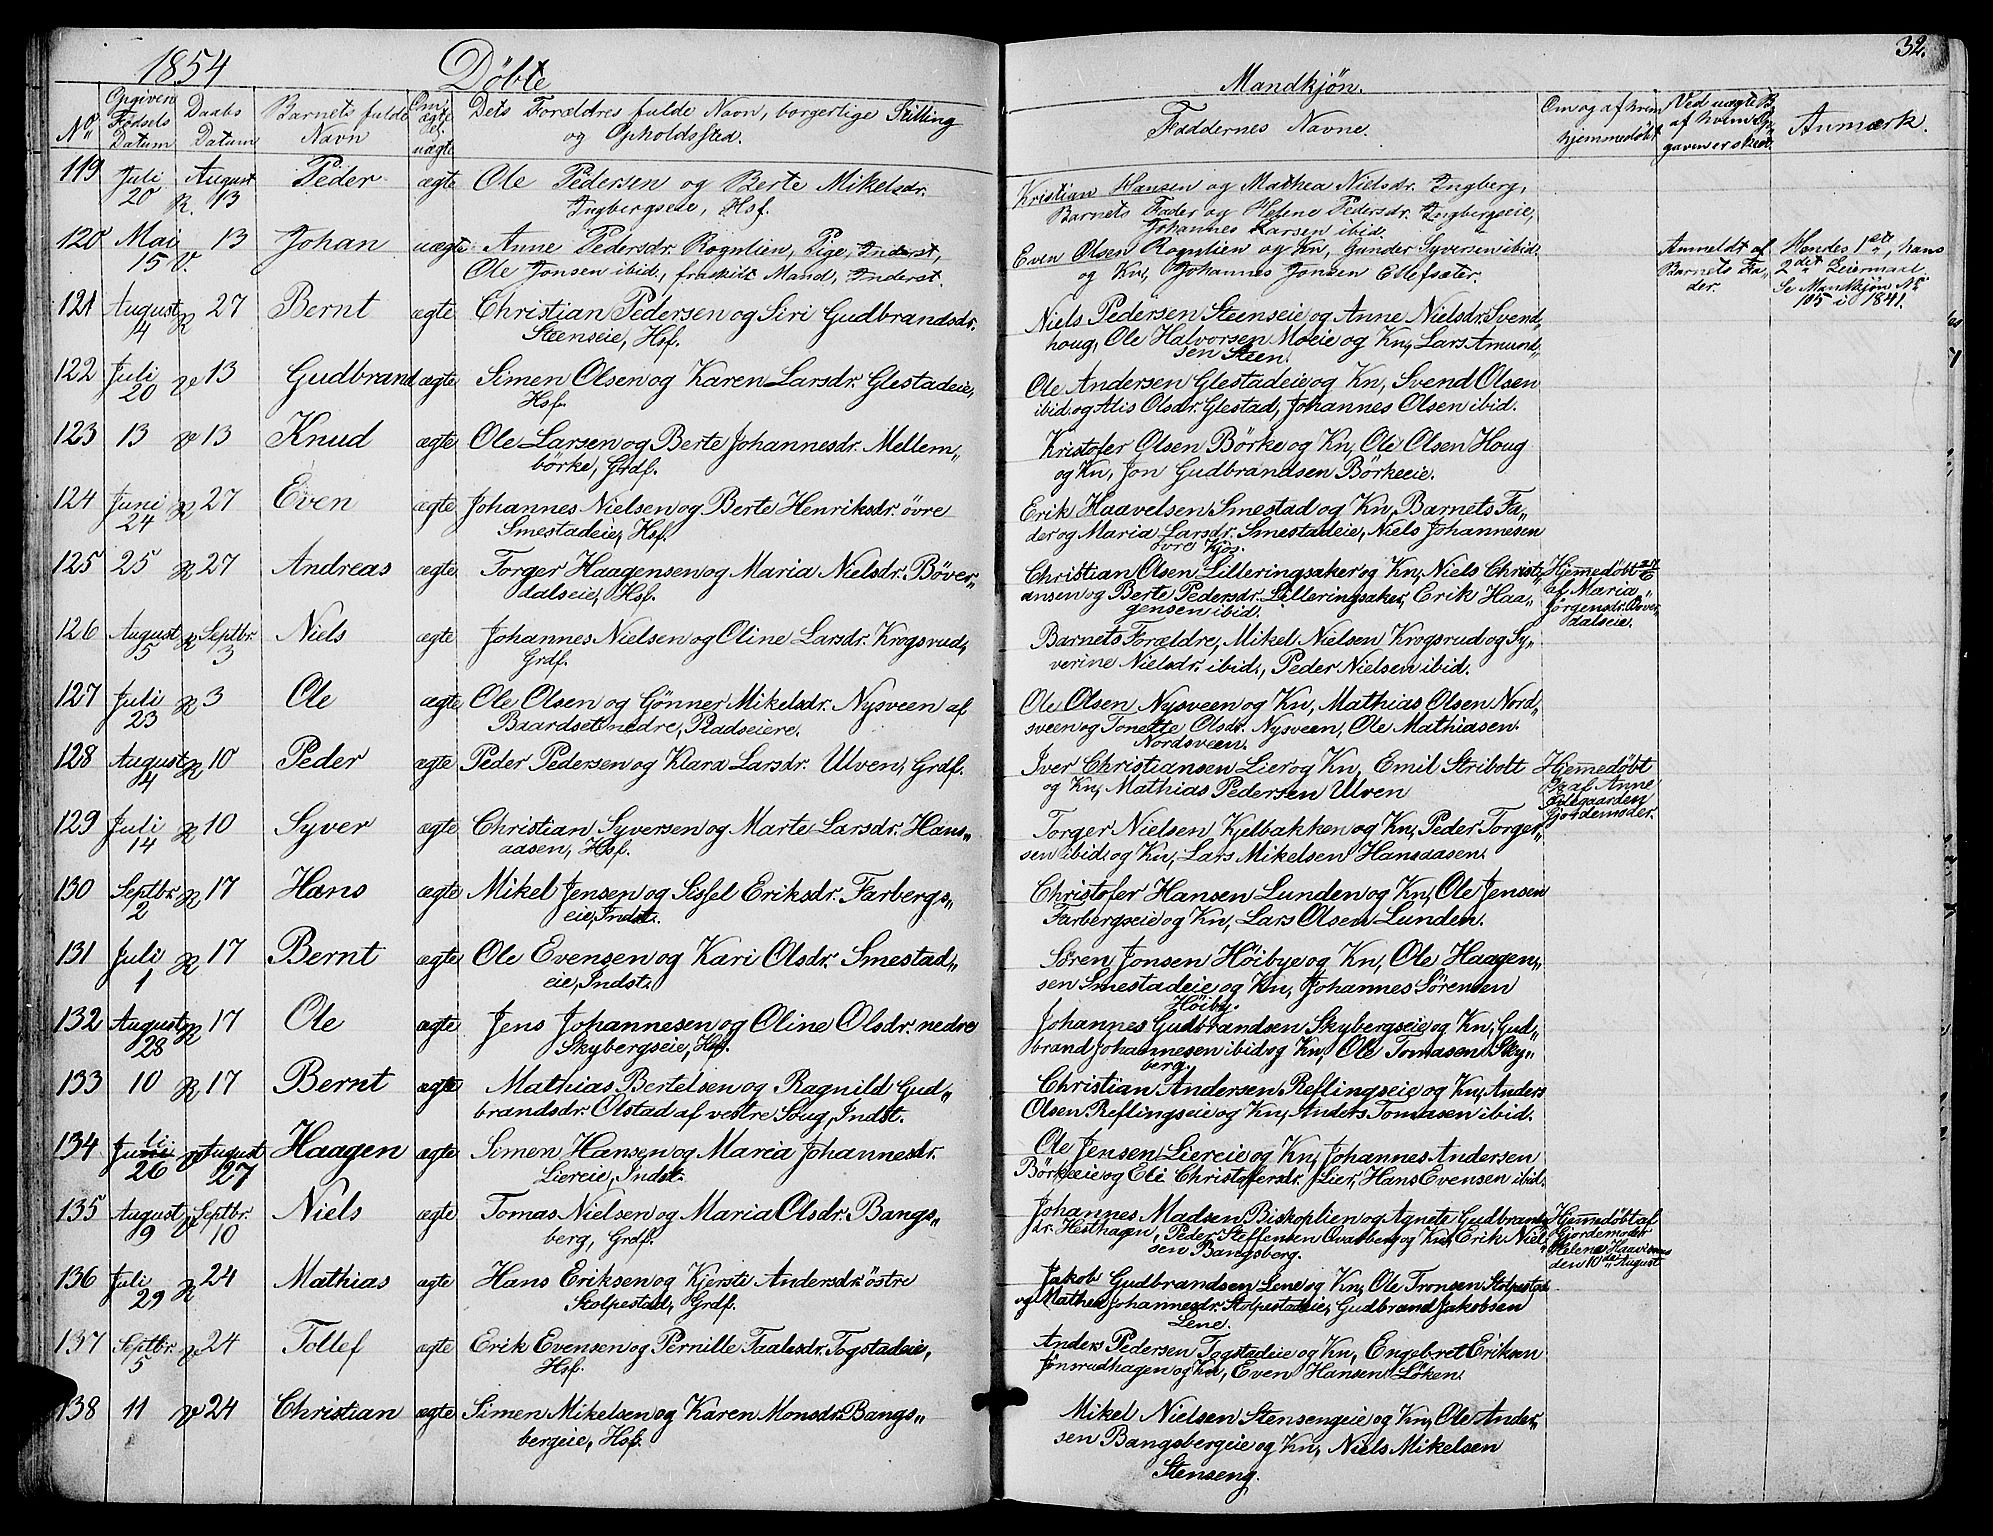 1854 Döbte
No Opgiven Fødsels Datum Daabs Datum Barnets fulde Navn Om ægte el. uægte Dets Forældres fulde Navn, borgerlige Stilling og Opholdssted.
119 Juli 20 R. August 13 Peder ægte Ole Pedersen og Berte Mikelsdr.
Ingbergseie, Hsf.
120 Mai 15 V. 13 Johan uægte Anne Pedersdr. Rognlien, Pige, Inderst,
Ole Jonsen ibid., fraskilt Mand, Inderst.
121 August 14 R 27 Bernt ægte Christian Pedersen og Siri Gudbrandsdr.
Steenseie, Hsf.
122 Juli 20 V 13 Gudbrand ægte Simen Olsen og Karen Larsdr. Glestadeie,
Hsf.
123 13 V 13 Knud ægte Ole Larsen og Berte Johannesdr. Mellem„
börke, Grdf.
124 Juni 24 R 27 Even ægte Johannes Nielsen og Berte Henriksdr. övre
Smestadeie, Hsf.
125 25 R 27 Andreas ægte Torger Haagensen og Maria Nielsdr. Böver„
dalseie, Hsf.
126 August 5 R Septbr. 3 Niels ægte Johannes Nielsen og Oline Larsdr. Krogsrud,
Grdf.
127 Juli 23 R 3 Ole ægte Ole Olsen og Gönner Mikelsdr. Nysveen af
Baardset nedre, Pladseiere.
128 August 4 R 10 Peder ægte Peder Pedersen og Klara Larsdr. Ulven, Grdf.
129 Juli 14 R 10 Syver ægte Christian Syversen og Marte Larsdr. Hans„
aasen, Hsf.
130 Septbr. 2 R 17 Hans ægte Mikel Jensen og Sissel Eriksdr. Farbergs„
eie, Indst.
131 Juli 1 R 17 Bernt ægte Ole Evensen og Kari Olsdr. Smestad„
eie, Indst.
132 August 28 R 17 Ole ægte Jens Johannesen og Oline Olsdr. nedre
Skybergseie, Hsf.
133 10 R 17 Bernt ægte Mathias Bertelsen og Ragnild Gud„
brandsdr. Olstad af vestre Soug, Indst.
134 Juli 26 V August 27 Haagen ægte Simen Hansen og Maria Johannesdr.
Liereie, Indst.
135 August 9 V Septbr. 10 Niels ægte Tomas Nielsen og Maria Olsdr. Bangs„
berg, Grdf.
136 Juli 29 R 24 Mathias ægte Hans Eriksen og Kjersti Andersdr. östre
Stolpestad, Grdf.
137 Septbr. 5 V 24 Tollef ægte Erik Evensen og Pernille Taalesdr. Togstadeie,
Hsf.
138 11 V 24 Christian ægte Simen Mikelsen og Karen Monsdr. Bangs„
bergeie, Hsf.
32.
Mandkjön.
Faddernes Navne. Om og af hvem hjemmedøbt Ved uægte B. af hvem Opgaven er skeet. Anmærk.
Kristian Hansen og Mathea Nielsdr. Ingberg,
Barnets Fader og Helene Pedersdr. Ingbergseie,
Johannes Larsen ibid.
Even Olsen Rognlien og Kn, Gunder Syversen ibid.
og Kn, Johannes Jonsen Ellefsæter.
Anmeldt af Barnets Fa„ der.
Hendes 1ste, hans 2det Leiermaal. Se Mandkjön No 105 i 1841.
Niels Pedersen Steenseie og Anne Nielsdr. Svend„
houg, Ole Halvorsen Moeie og Kn, Lars Amund„
sen Steen.
Ole Andersen Glestadeie og Kn, Svend Olsen
ibid. og Alis Olsdr. Glestad, Johannes Olsen ibid.
Kristofer Olsen Börke og Kn, Ole Olsen Houg
og Kn, Jon Gudbrandsen Börkeeie.
Erik Haavelsen Smestad og Kn, Barnets Fa„
der og Maria Larsdr. Smestadeie, Niels Johannesen
övre Kjos.
Christian Olsen Lilleringsaker og Kn, Niels Christi„
ansen og Berte Pedersdr. Lilleringsaker, Erik Haa„
gensen ibid.
Hjemmedöbt af Maria Jörgensdr. Böver„ dalseie.
Barnets Forældre, Mikel Nielsen Krogsrud og Sy„
verine Nielsdr. ibid., Peder Nielsen ibid.
Ole Olsen Nysveen og Kn, Mathias Olsen Nord„
sveen og Tonette Olsdr. Nysveen, Ole Mathiasen
Nordsveen.
Iver Christiansen Lier og Kn, Emil Stribolt
og Kn, Mathias Pedersen Ulven
Hjemmedöbt af Anne Gjordemoder.
Torger Nielsen Kjelbakken og Kn, Peder Torger„
sen ibid. og Kn, Lars Mikelsen Hansaasen.
Christofer Hansen Lunden og Kn, Ole Jensen
Farbergseie og Kn, Lars Olsen Lunden.
Sören Jonsen Höibye og Kn, Ole Haagen„
sen Smestadeie og Kn, Johannes Sörensen
Höiby.
Johannes Gudbrandsen Skybergseie og Kn, Gud„
brand Johannesen ibid og Kn, Ole Tomasen Sky„
berg.
Christian Andersen Reflingseie og Kn, Anders
Olsen Reflingseie og Kn, Anders Tomasen ibid.
Ole Jensen Liereie og Kn, Johannes Andersen
Börkeeie og Eli Christofersdr. Lier, Hans Evensen ibid.
Johannes Madsen Biskoplien og Agnete Gudbrands„
dr. Hesthagen, Peder Steffensen Ovarberg og Kn, Erik Niel„
sen Bangsberg.
Hjemmedöbt af Gjordemoder Helene den 10de August
Jakob Gudbrandsen Lene og Kn, Ole Tronsen Stolpestad
og Mathea Johannesdr. Stolpestadeie, Gudbrand Jakobsen
Lene.
Anders Pedersen Togstadeie og Kn, Engebret Eriksen
Jönsrudhagen og Kn, Even Hansen Löken.
Mikel Nielsen Stensengeie og Kn, Ole Ander„
sen Bangsbergeie og Kn, Niels Mikelsen
Stenseng.